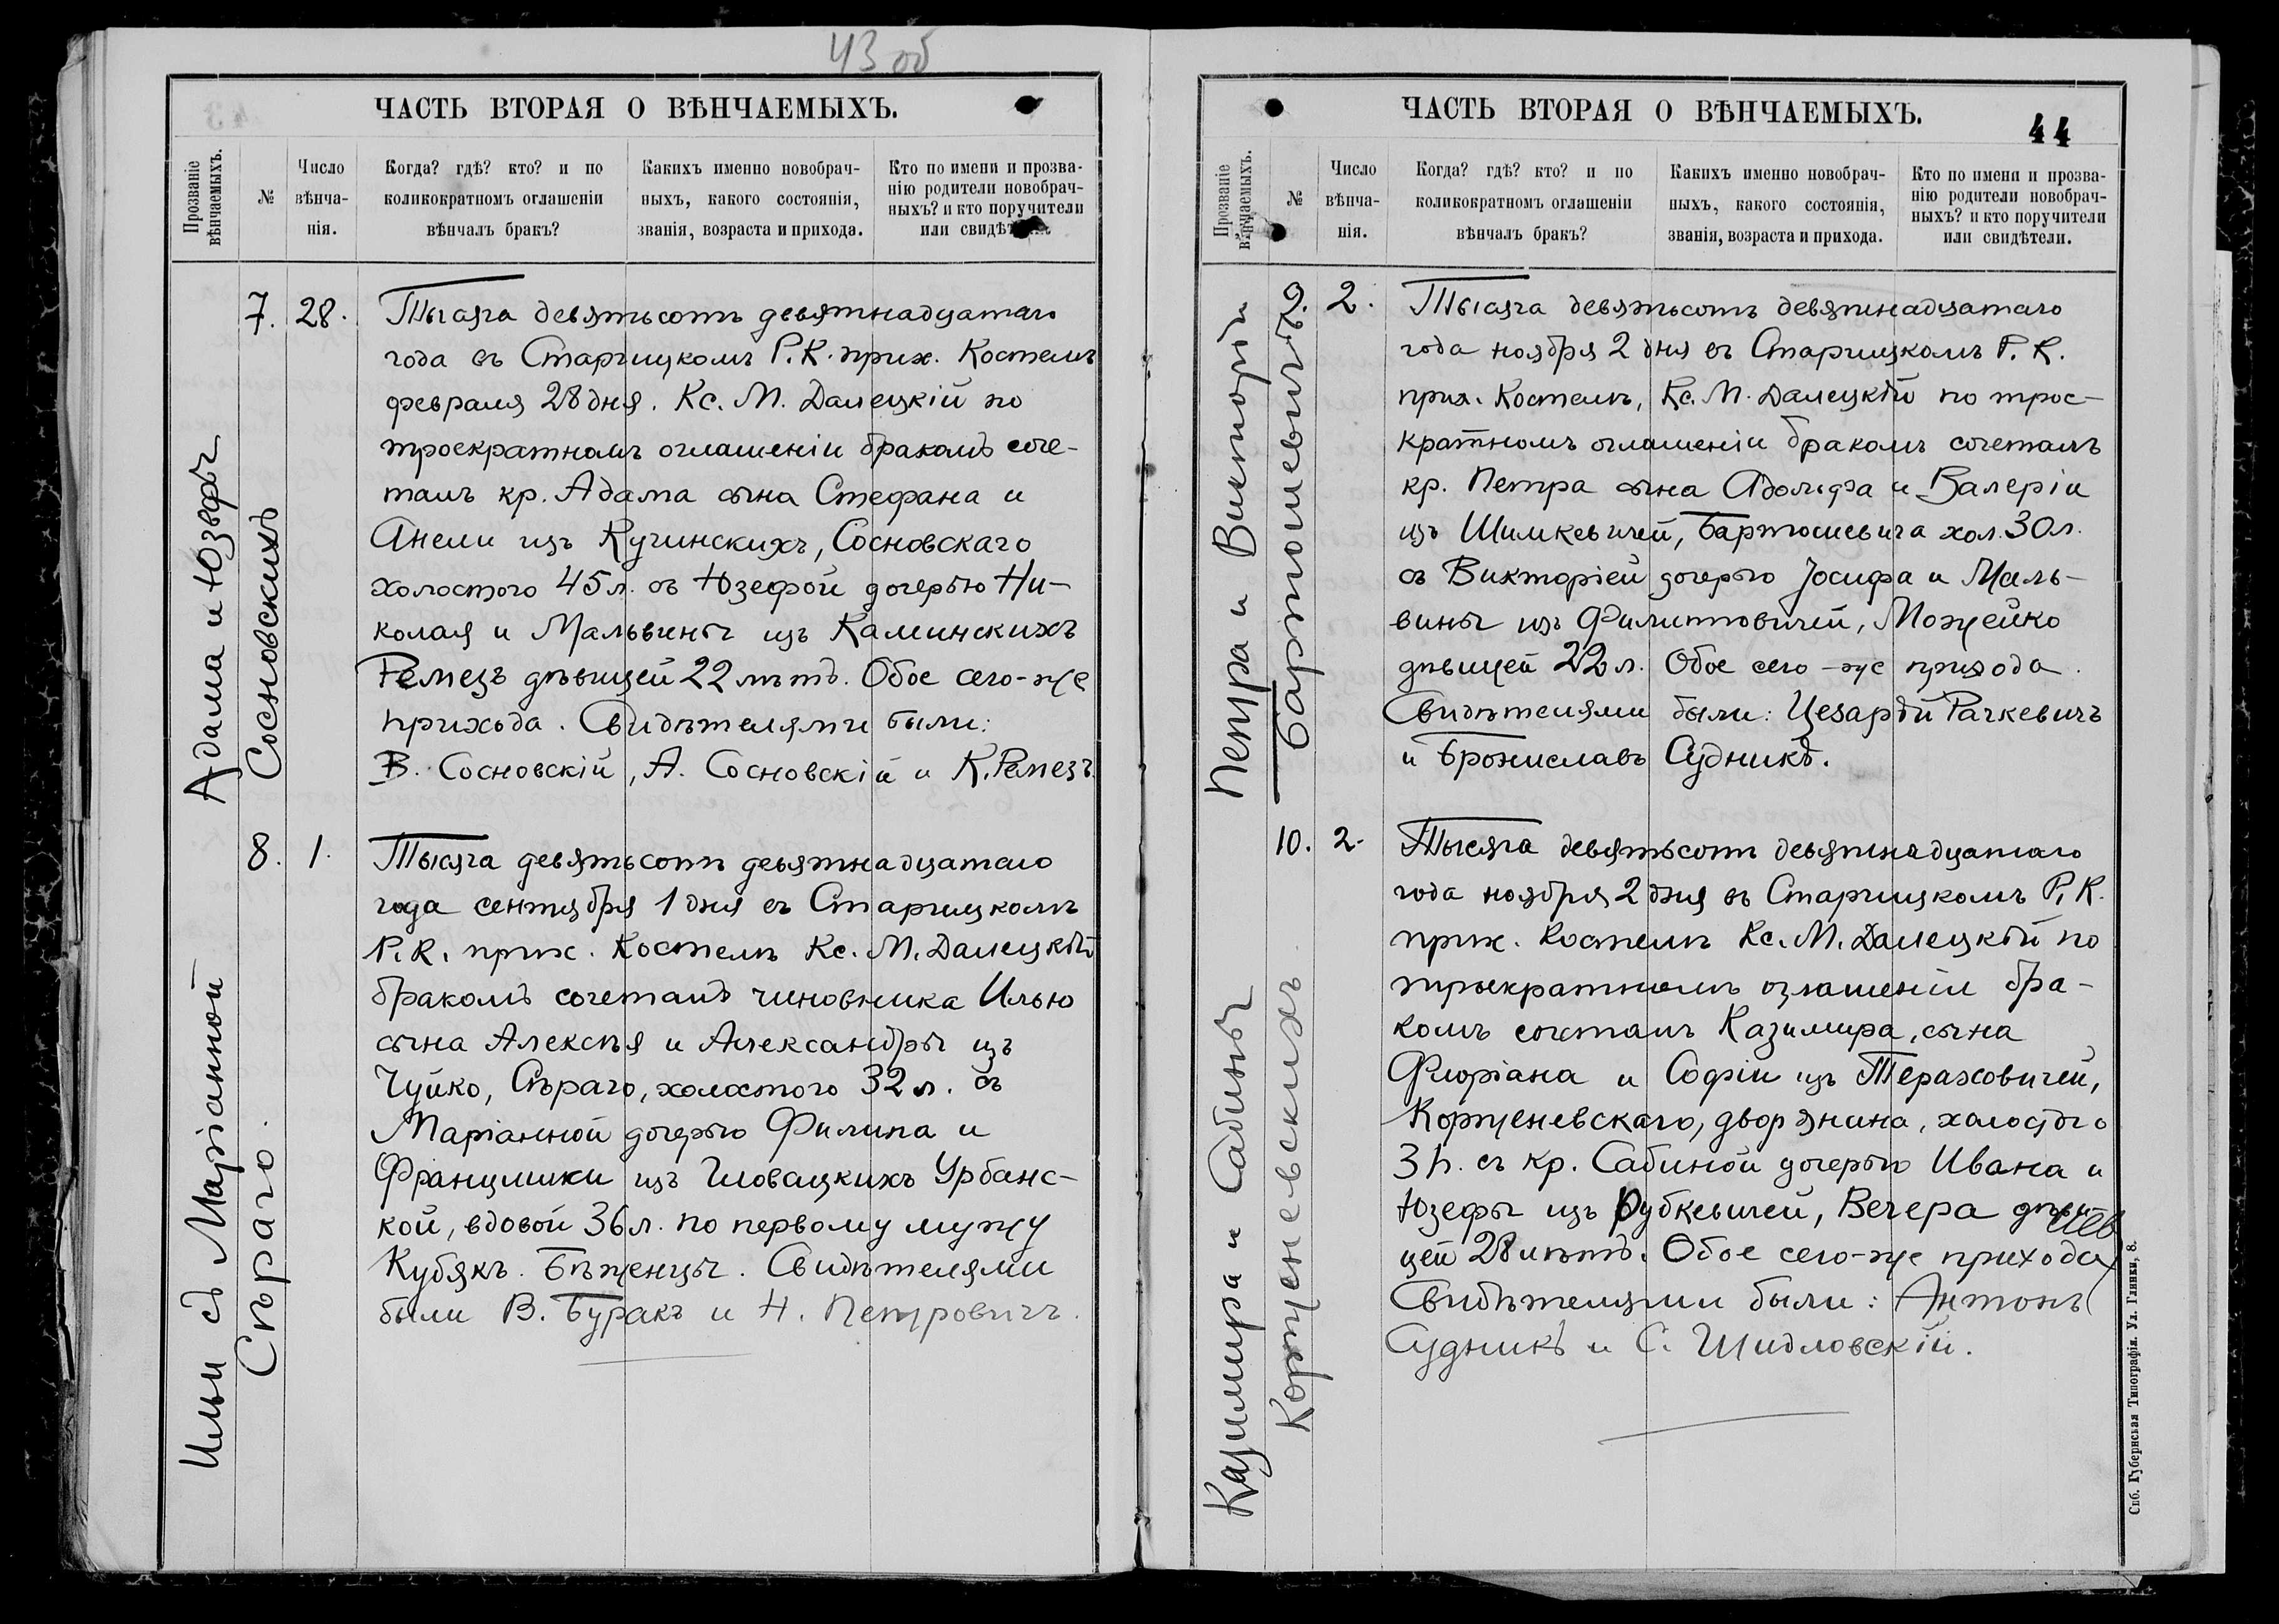 43 об
ЧАСТЬ ВТОРАЯ О ВѢНЧАЕМЫХЪ.
Прозваніе вѣнчаемыхъ.
№
Число вѣнча-нія.
Когда? гдѣ? кто? и по
коликократномъ оглашеніи
вѣнчалъ бракъ?
Какихъ именно новобрач-
ныхъ, какого состоянія,
званія, возраста и прихода.
Кто по имени и прозва-
нію родители новобрач-
ныхъ? и кто поручители
или свидѣтели.
Адама и Юзефы
Сосновскихъ
7. 28.
Тысяча девятьсотъ девятнадцатаго
года въ Старчицкомъ Р. К. прих. Костелѣ
февраля 28 дня. Кс. М. Далецкій по
троекратномъ оглашеніи бракомъ соче-
талъ кр. Адама сына Стефана и
Анели изъ Кучинскихъ, Сосновскаго
холостого 45 л. съ Юзефой дочерью Ни-
колая и Мальвины изъ Каминскихъ
Ремезъ дѣвицей 22 лѣтъ. Обое сего-же
прихода. Свидѣтелями были:
В. Сосновскій, А. Сосновскій и К. Ремезъ.
Ильи съ Маріанной
Сѣраго.
8. 1.
Тысяча девятьсотъ девятнадцатаго
года сентября 1 дня въ Старчицкомъ
Р. К. прих. Костелѣ Кс. М. Далецкій
бракомъ сочеталъ чиновника Илью
сына Алексѣя и Александры изъ
Чуйко, Сѣраго, холостого 32 л. съ
Маріанной дочерью Филипа и
Францишки изъ Гловацкихъ Урбанс-
кой, вдовой 36 л. по первому мужу
Кубякъ. Бѣженцы. Свидѣтелями
были В. Буракъ и Н. Петровичъ.
ЧАСТЬ ВТОРАЯ О ВѢНЧАЕМЫХЪ.
44
Прозваніе вѣнчаемыхъ.
№
Число вѣнча-нія.
Когда? гдѣ? кто? и по
коликократномъ оглашеніи
вѣнчалъ бракъ?
Какихъ именно новобрач-
ныхъ, какого состоянія,
званія, возраста и прихода.
Кто по имени и прозва-
нію родители новобрач-
ныхъ? и кто поручители
или свидѣтели.
Петра и Викторіи
Бартошевичъ
9. 2.
Тысяча девятьсотъ девятнадцатаго
года ноября 2 дня въ Старчицкомъ Р. К.
прих. Костелѣ, Кс. М. Далецкій по трое-
кратномъ оглашеніи бракомъ сочеталъ
кр. Петра сына Адольфа и Валеріи
изъ Шимкевичей, Бартошевича хол. 30 л.
съ Викторіей дочерью Іосифа и Маль-
вины изъ Филиповичей, Можейко
дѣвицей 22 л. Обое сего-же прихода.
Свидѣтелями были: Цезарій Рачкевичъ
и Брониславъ Судникъ.
Казимира и Сабины
Корженевскихъ
10. 2.
Тысяча девятьсотъ девятнадцатаго
года ноября 2 дня въ Старчицкомъ Р. К.
прих. Костелѣ Кс. М. Далецкій по
троекратномъ оглашеніи бра-
комъ сочеталъ Казимира, сына
Флоріана и Софіи изъ Тераховичей,
Корженевскаго, дворянина, холостого
31 л. съ кр. Сабиной дочерью Ивана и
Юзефы изъ Рубкевичей, Вечера дѣви-
цей 28 лѣтъ. Обое сего-же прихода
Свидѣтелями были: Антонъ
Судникъ и С. Шидловскій.
Спб. Губернская Типографія. Ул. Глинки, 8.